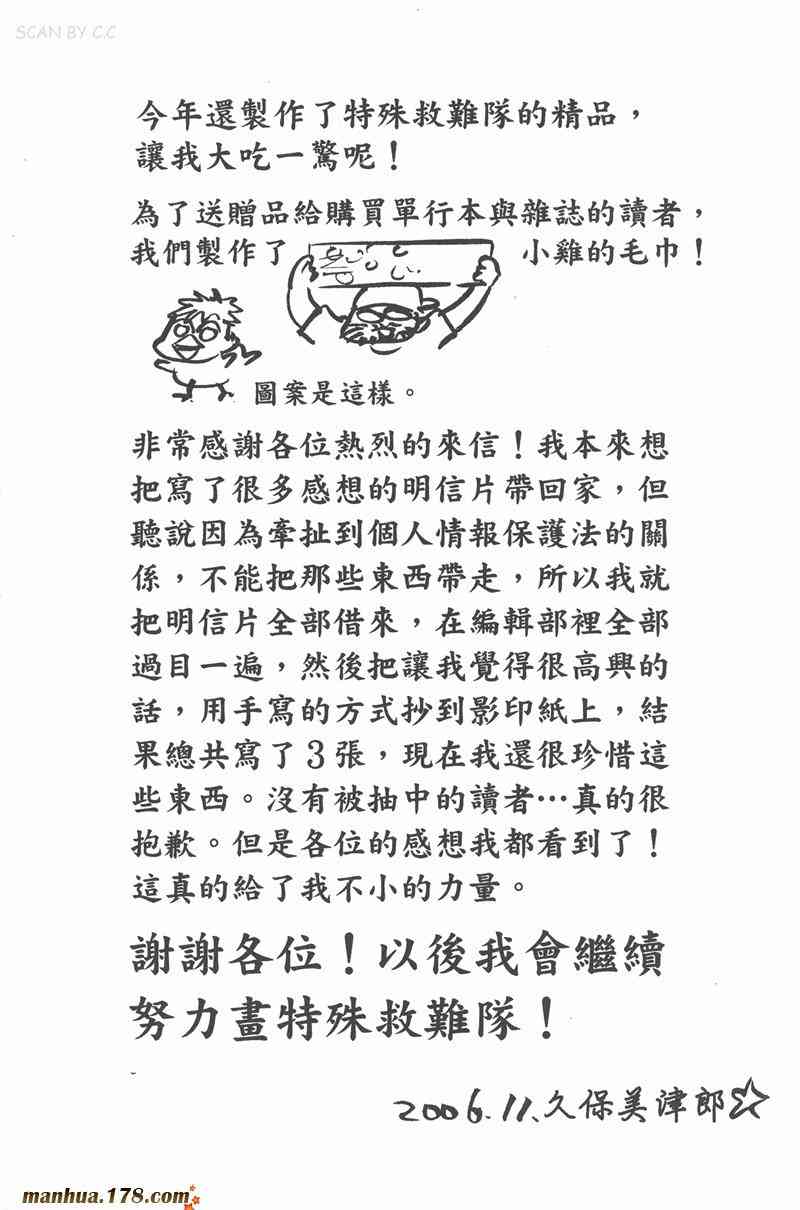 SCAN BY C.C
今年還製作了特殊救難隊的精品，
讓我大吃一驚呢！
為了送贈品給購買單行本與雜誌的讀者，
我們製作了 小雞的毛巾！
圖案是這樣。
非常感謝各位熱烈的來信！我本來想
把寫了很多感想的明信片帶回家，但
聽說因為牽扯到個人情報保護法的關
係，不能把那些東西帶走，所以我就
把明信片全部借來，在編輯部裡全部
過目一遍，然後把讓我覺得很高興的
話，用手寫的方式抄到影印紙上，結
果總共寫了3張，現在我還很珍惜這
些東西。沒有被抽中的讀者…真的很
抱歉。但是各位的感想我都看到了！
這真的給了我不小的力量。
謝謝各位！以後我會繼續
努力畫特殊救難隊！
2006.11.久保美津郎☆
manhua.178.com